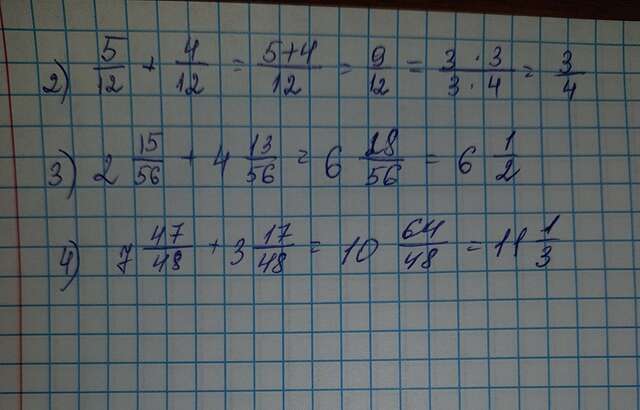 2) 5/12 + 4/12 = 5+4/12 = 9/12 = 3 · 3/3 · 4 = 3/4
3) 2 15/56 + 4 13/56 = 6 28/56 = 6 1/2
4) 7 47/48 + 3 17/48 = 10 64/48 = 11 1/3